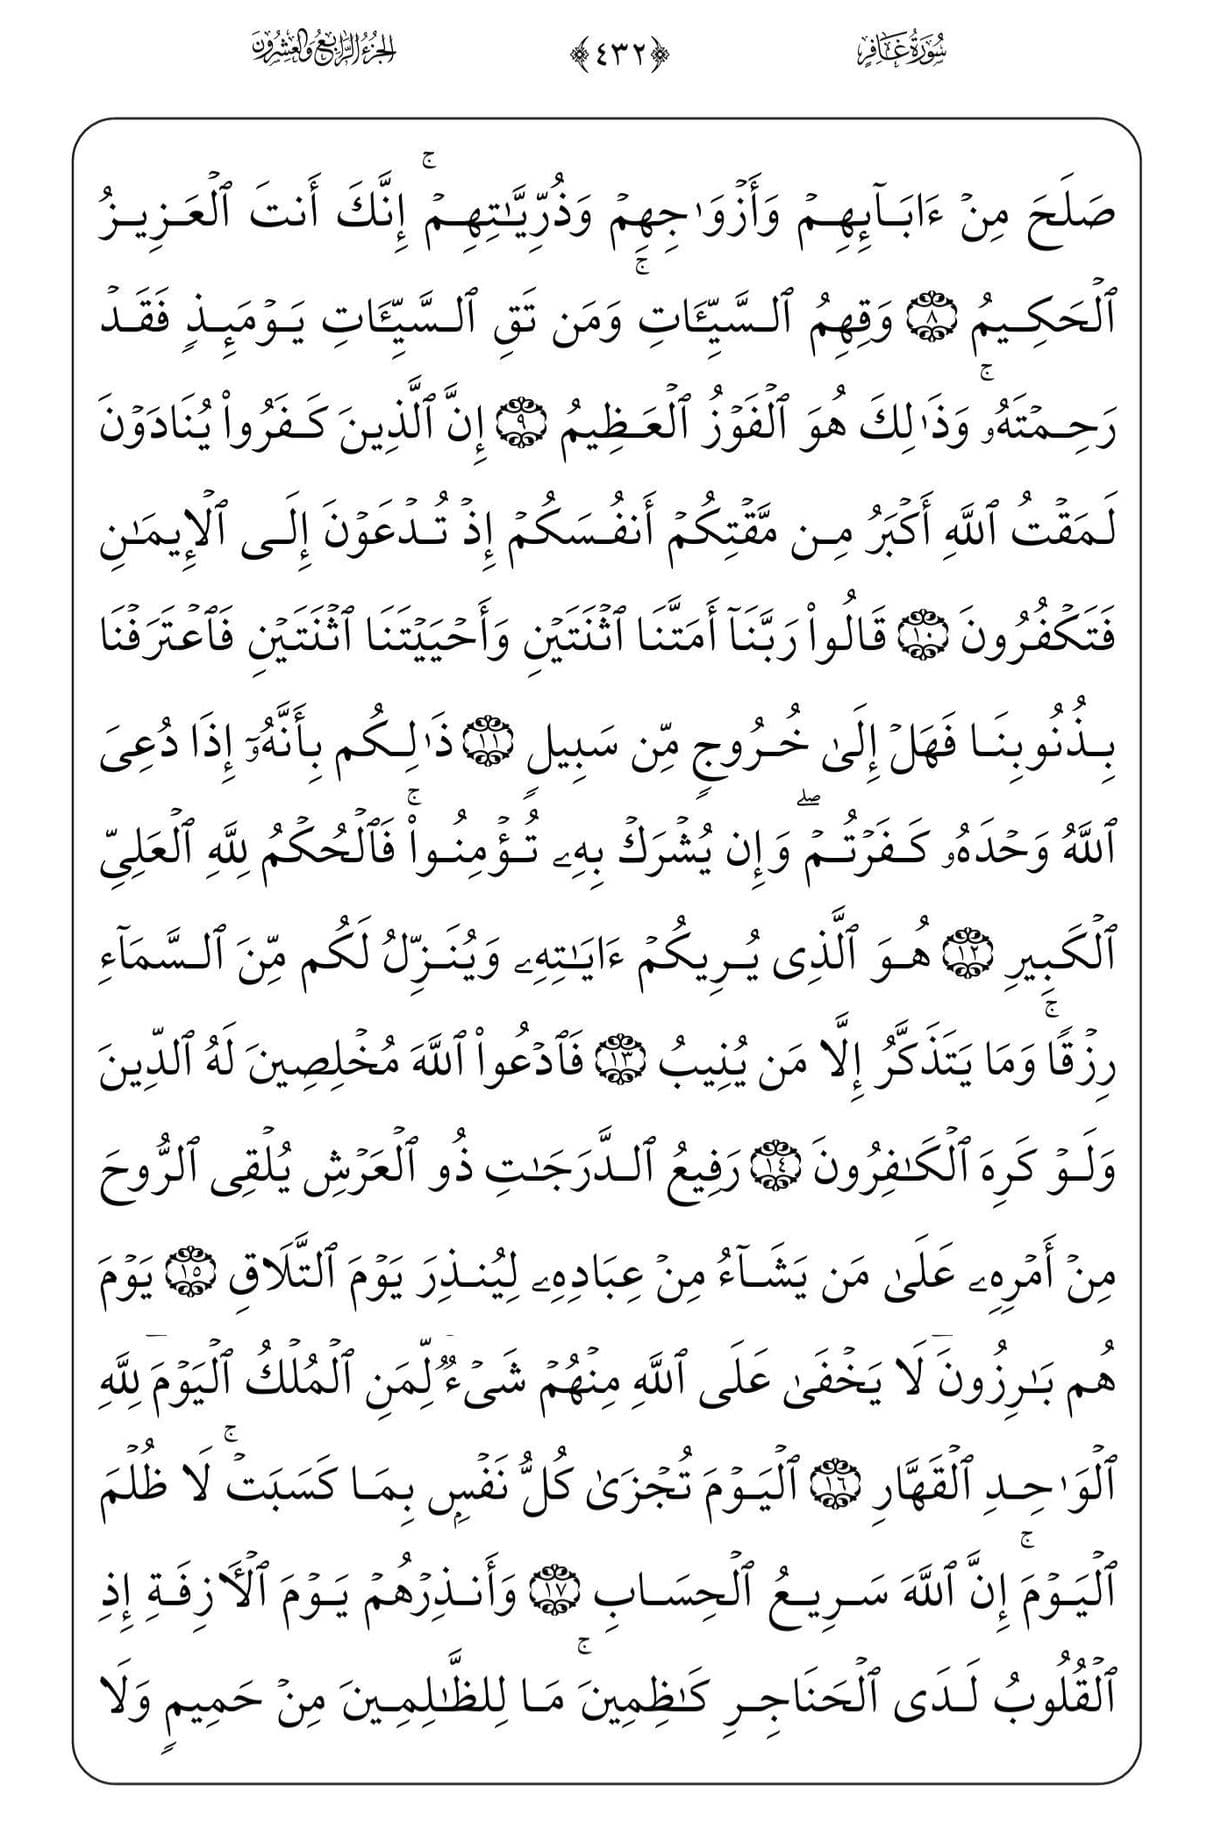 سُورَةُ غَافِرٍ ﴿٤٣٢﴾ الجُزْءُ الرَّابِعُ وَالعِشْرُونَ
صَلَحَ مِنۡ ءَابَآئِهِمۡ وَأَزۡوَٰجِهِمۡ وَذُرِّيَّٰتِهِمۡۚ إِنَّكَ أَنتَ ٱلۡعَزِيزُ
ٱلۡحَكِيمُ ٨ وَقِهِمُ ٱلسَّيِّـَٔاتِۚ وَمَن تَقِ ٱلسَّيِّـَٔاتِ يَوۡمَئِذٖ فَقَدۡ
رَحِمۡتَهُۥۚ وَذَٰلِكَ هُوَ ٱلۡفَوۡزُ ٱلۡعَظِيمُ ٩ إِنَّ ٱلَّذِينَ كَفَرُواْ يُنَادَوۡنَ
لَمَقۡتُ ٱللَّهِ أَكۡبَرُ مِن مَّقۡتِكُمۡ أَنفُسَكُمۡ إِذۡ تُدۡعَوۡنَ إِلَى ٱلۡإِيمَٰنِ
فَتَكۡفُرُونَ ١٠ قَالُواْ رَبَّنَآ أَمَتَّنَا ٱثۡنَتَيۡنِ وَأَحۡيَيۡتَنَا ٱثۡنَتَيۡنِ فَٱعۡتَرَفۡنَا
بِذُنُوبِنَا فَهَلۡ إِلَىٰ خُرُوجٖ مِّن سَبِيلٖ ١١ ذَٰلِكُم بِأَنَّهُۥٓ إِذَا دُعِيَ
ٱللَّهُ وَحۡدَهُۥ كَفَرۡتُمۡۖ وَإِن يُشۡرَكۡ بِهِۦ تُؤۡمِنُواْۚ فَٱلۡحُكۡمُ لِلَّهِ ٱلۡعَلِيِّ
ٱلۡكَبِيرِ ١٢ هُوَ ٱلَّذِي يُرِيكُمۡ ءَايَٰتِهِۦ وَيُنَزِّلُ لَكُم مِّنَ ٱلسَّمَآءِ
رِزۡقٗاۚ وَمَا يَتَذَكَّرُ إِلَّا مَن يُنِيبُ ١٣ فَٱدۡعُواْ ٱللَّهَ مُخۡلِصِينَ لَهُ ٱلدِّينَ
وَلَوۡ كَرِهَ ٱلۡكَٰفِرُونَ ١٤ رَفِيعُ ٱلدَّرَجَٰتِ ذُو ٱلۡعَرۡشِ يُلۡقِي ٱلرُّوحَ
مِنۡ أَمۡرِهِۦ عَلَىٰ مَن يَشَآءُ مِنۡ عِبَادِهِۦ لِيُنذِرَ يَوۡمَ ٱلتَّلَاقِ ١٥ يَوۡمَ
هُم بَٰرِزُونَۖ لَا يَخۡفَىٰ عَلَى ٱللَّهِ مِنۡهُمۡ شَيۡءٞۚ لِّمَنِ ٱلۡمُلۡكُ ٱلۡيَوۡمَۖ لِلَّهِ
ٱلۡوَٰحِدِ ٱلۡقَهَّارِ ١٦ ٱلۡيَوۡمَ تُجۡزَىٰ كُلُّ نَفۡسِۭ بِمَا كَسَبَتۡۚ لَا ظُلۡمَ
ٱلۡيَوۡمَۚ إِنَّ ٱللَّهَ سَرِيعُ ٱلۡحِسَابِ ١٧ وَأَنذِرۡهُمۡ يَوۡمَ ٱلۡأٓزِفَةِ إِذِ
ٱلۡقُلُوبُ لَدَى ٱلۡحَنَاجِرِ كَٰظِمِينَۚ مَا لِلظَّٰلِمِينَ مِنۡ حَمِيمٖ وَلَا